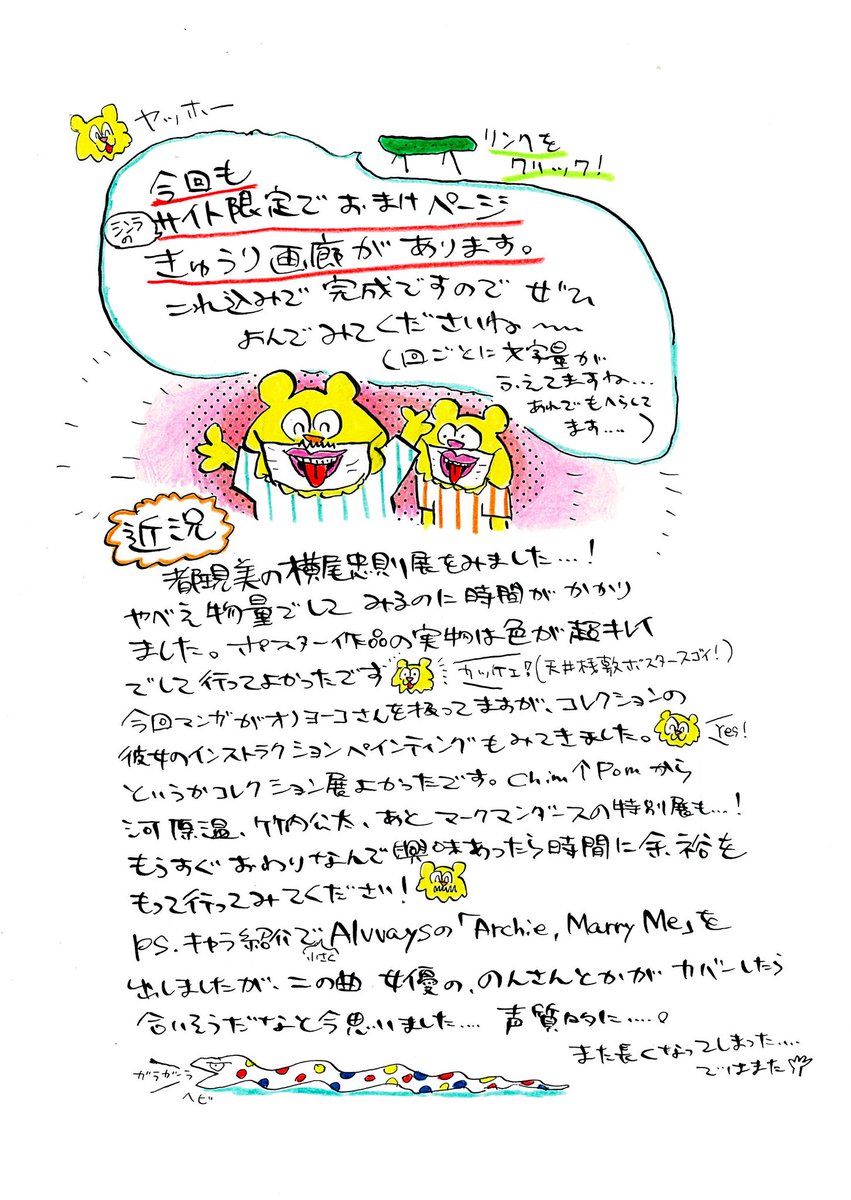 ヤッホー
リンクを
クリック！
今回も
サイト限定で おまけページ
シンラの
きゅうり画廊が あります。
これ込みで 完成ですので ぜひ
よんでみてくださいね〜
(回ごとに文字量が
ふえてますね…
あれでもへらして
ます….)
近況
都現美の横尾忠則展をみました…！
やべえ物量でして みるのに時間がかかり
ました。ポスター作品の実物は色が超キレイ
でして行ってよかったです
カッケェ？(天井桟敷ポスタースゴイ！)
今回マンガがオノヨーコさんを扱ってますが、コレクションの
彼女のインストラクションペインティングもみてきました。
Yes!
というかコレクション展よかったです。Chim↑Pomから
河原温、竹内公太、あとマークマンダースの特別展も…！
もうすぐおわりなんで興味あったら時間に余裕を
もって行ってみてください！
PS.キャラ紹介で Alvvaysの「Archie, Marry Me」を
小さく
出しましたが、この曲 女優の、のんさんとかが カバーしたら
合いそうだなと今思いました…. 声質的に….。
また長くなってしまった….
ではまた
ガラガーラ
ヘビ